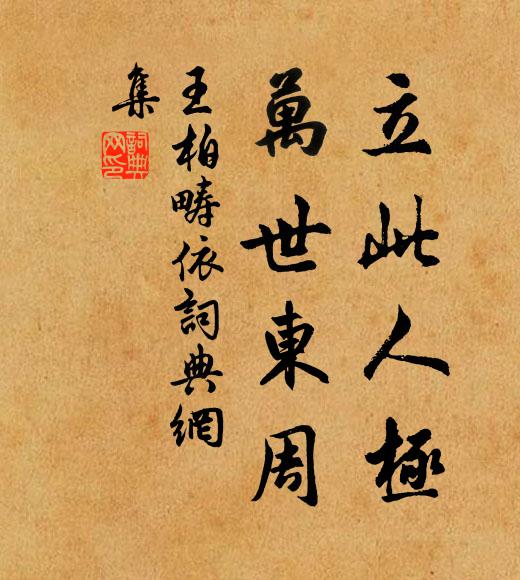 立此人極
萬世東周
王柏疇依詞典網
集
詞典
网印